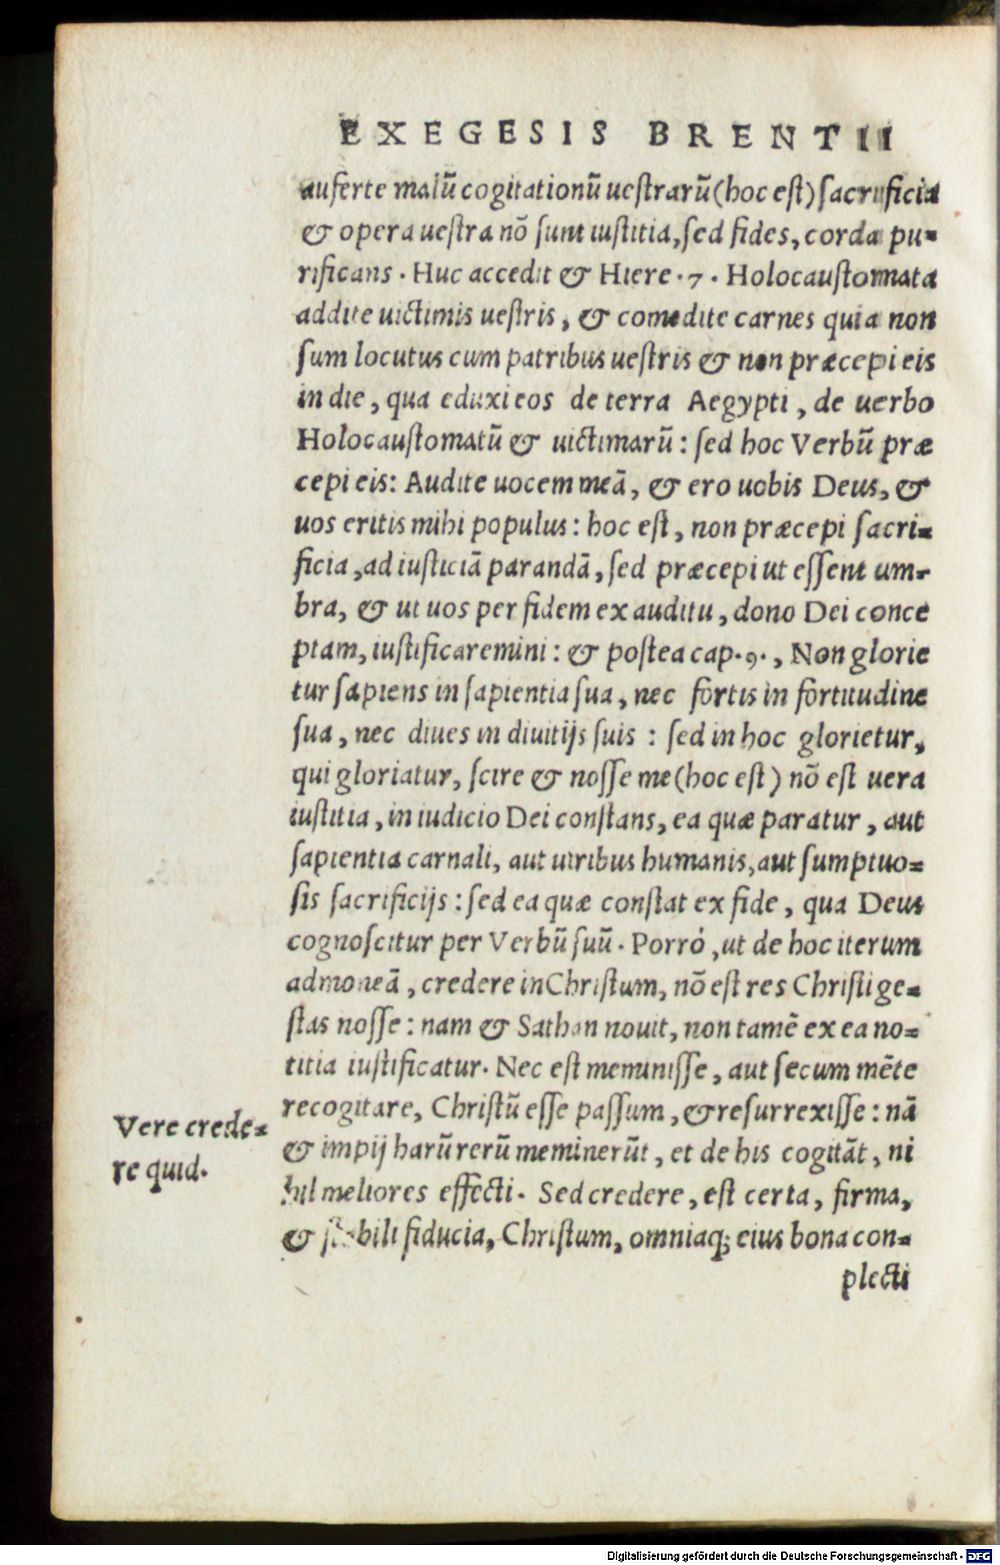 EXEGESIS BRENTII
auferte malū cogitationū ueſtrarū (hoc eſt) ſacrificia
& opera ueſtra nō ſunt iuſtitia, ſed fides, corda pu-
rificans. Huc accedit & Hiere. 7. Holocauſtomata
addite uictimis ueſtris, & comedite carnes quia non
ſum locutus cum patribus ueſtris & non præcepi eis
in die, qua eduxi eos de terra Aegypti, de uerbo
Holocauſtomatū & uictimarū: ſed hoc Verbū præ
cepi eis: Audite uocem meā, & ero uobis Deus, &
uos eritis mihi populus: hoc eſt, non præcepi ſacri-
ficia, ad iuſticiā parandā, ſed præcepi ut eſſent um-
bra, & ut uos per fidem ex auditu, dono Dei conce
ptam, iuſtificaremini: & poſtea cap. 9., Non glorie
tur ſapiens in ſapientia ſua, nec fortis in fortitudine
ſua, nec diues in diuitijs ſuis: ſed in hoc glorietur,
qui gloriatur, ſcire & noſſe me (hoc eſt) nō eſt uera
iuſtitia, in iudicio Dei conſtans, ea quæ paratur, aut
ſapientia carnali, aut uiribus humanis, aut ſumptuo-
ſis ſacrificijs: ſed ea quæ conſtat ex fide, qua Deus
cognoſcitur per Verbū ſuū. Porrò, ut de hoc iterum
admoneā, credere in Chriſtum, nō eſt res Chriſti ge-
ſtas noſſe: nam & Sathan nouit, non tamē ex ea no-
titia iuſtificatur. Nec eſt meminiſſe, aut ſecum mēte
recogitare, Chriſtū eſſe paſſum, & reſurrexiſſe: nā
& impij harū rerū meminerūt, et de his cogitāt, ni
hil meliores effecti. Sed credere, eſt certa, firma,
& ſtabili fiducia, Chriſtum, omniaq; eius bona con-
plecti
Vere crede-
re quid.
Digitalisierung gefördert durch die Deutsche Forschungsgemeinschaft - DFG